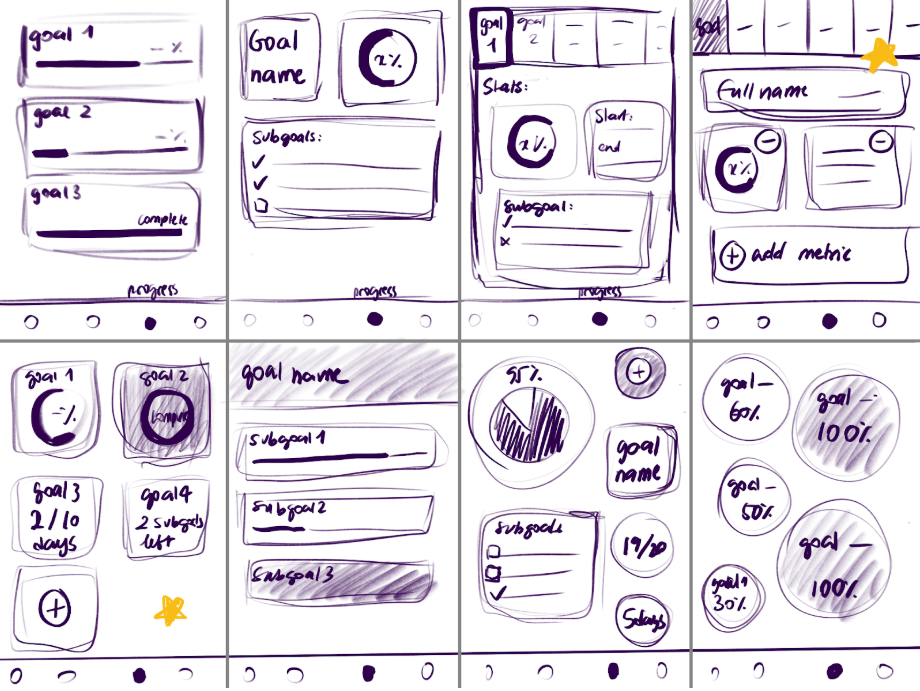 goal 1
– %
goal 2
– %
goal 3
complete
progress
Goal
name
x%
Subgoals:
progress
goal
1
goal
2
Stats:
x%
Start:
end
subgoal:
progress
goal
Full name
x%
add metric
goal 1
– %
goal 2
goal 3
2/10
days
goal 4
2 subgoals
left
goal name
Subgoal 1
Subgoal 2
Subgoal 3
95%
goal
name
Subgoals
19/20
5 days
goal –
60%
goal –
100%
goal –
50%
goal –
100%
goal 1
30%